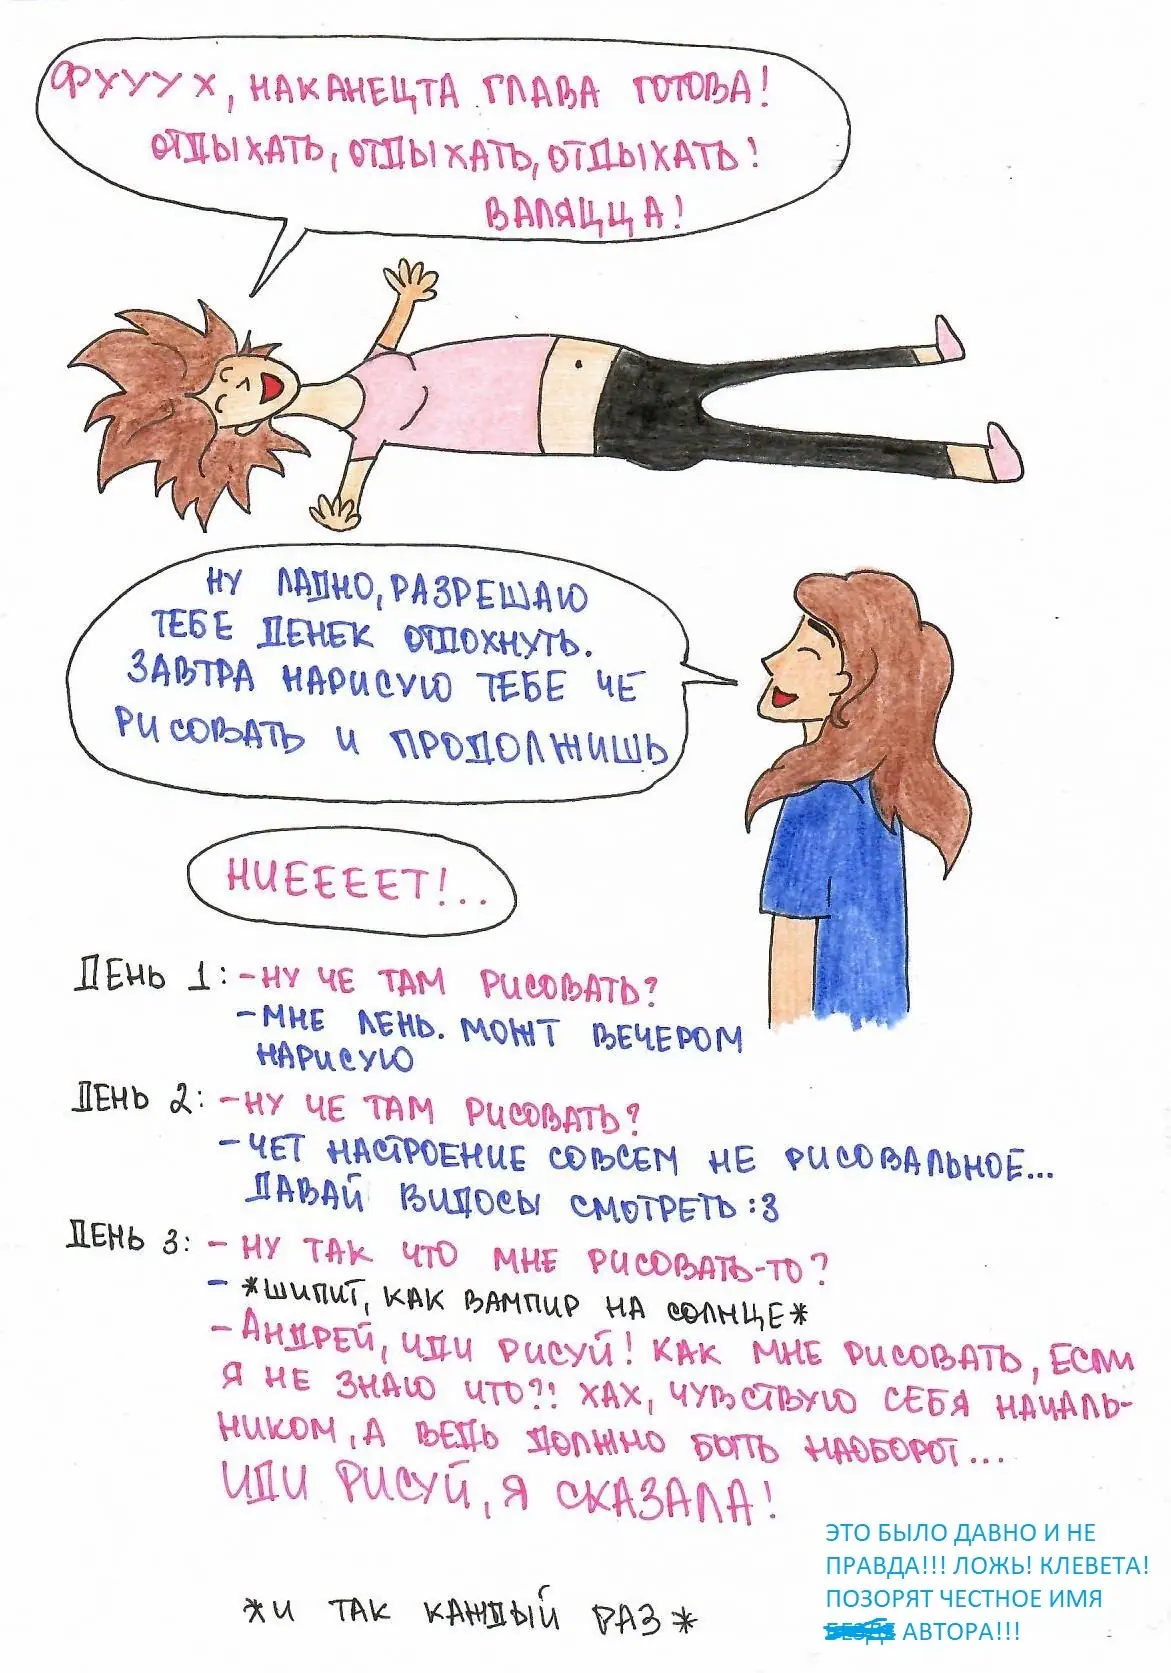 ФУУУХ, НАКАНЕЦТА ГЛАВА ГОТОВА!
ОТДЫХАТЬ, ОТДЫХАТЬ, ОТДЫХАТЬ!
ВАЛЯЦЦА!
НУ ЛАДНО, РАЗРЕШАЮ
ТЕБЕ ДЕНЕК ОТДОХНУТЬ.
ЗАВТРА НАРИСУЮ ТЕБЕ ЧЕ
РИСОВАТЬ И ПРОДОЛЖИШЬ
НИЕЕЕЕТ!..
ДЕНЬ 1: - НУ ЧЕ ТАМ РИСОВАТЬ?
- МНЕ ЛЕНЬ. МОЖТ ВЕЧЕРОМ
НАРИСУЮ
ДЕНЬ 2: - НУ ЧЕ ТАМ РИСОВАТЬ?
- ЧЕТ НАСТРОЕНИЕ СОВСЕМ НЕ РИСОВАЛЬНОЕ...
ДАВАЙ ВИДОСЫ СМОТРЕТЬ :3
ДЕНЬ 3: - НУ ТАК ЧТО МНЕ РИСОВАТЬ-ТО?
- *ШИПИТ, КАК ВАМПИР НА СОЛНЦЕ*
- АНДРЕЙ, ИДИ РИСУЙ! КАК МНЕ РИСОВАТЬ, ЕСЛИ
Я НЕ ЗНАЮ ЧТО?! ХАХ, ЧУВСТВУЮ СЕБЯ НАЧАЛЬ-
НИКОМ, А ВЕДЬ ДОЛЖНО БЫТЬ НАОБОРОТ...
ИДИ РИСУЙ, Я СКАЗАЛА!
ЭТО БЫЛО ДАВНО И НЕ
ПРАВДА!!! ЛОЖЬ! КЛЕВЕТА!
ПОЗОРЯТ ЧЕСТНОЕ ИМЯ
АВТОРА!!!
*И ТАК КАЖДЫЙ РАЗ*